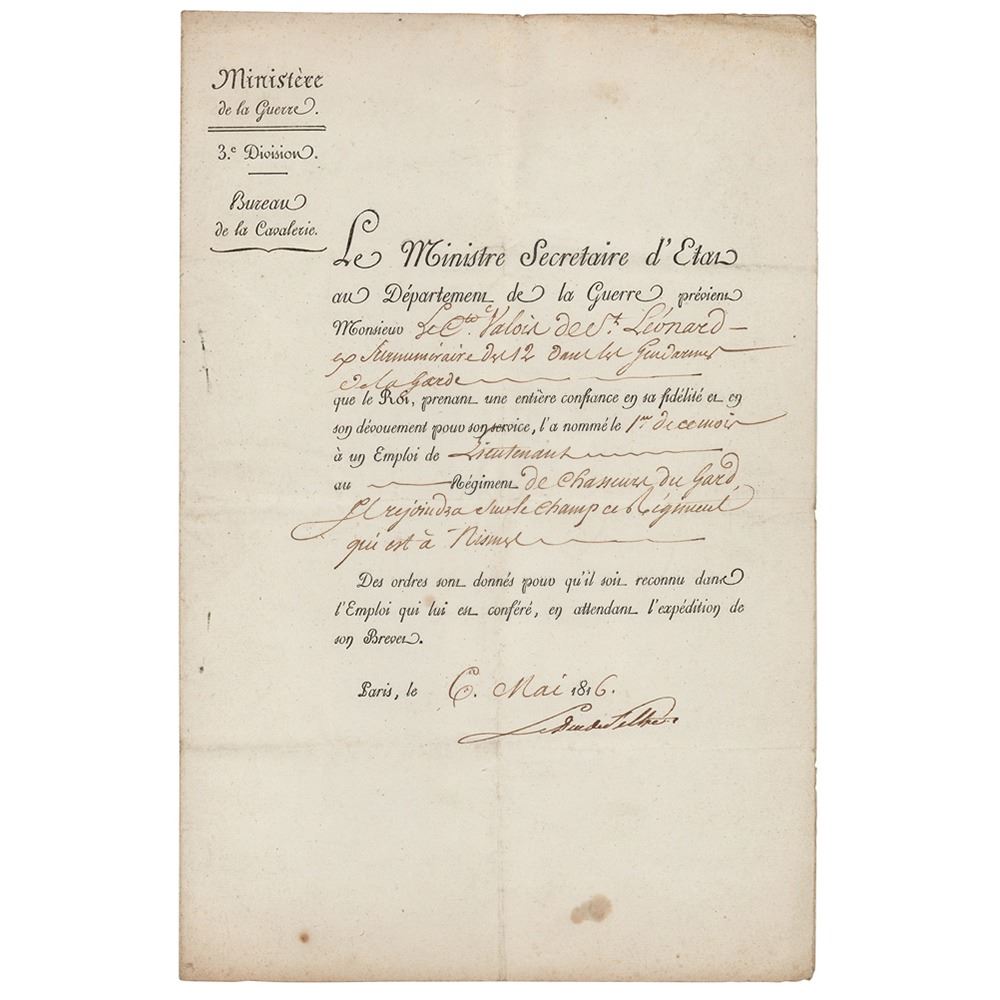 Ministère
de la Guerre.
3.e Division.
Bureau
de la Cavalerie.
Le Ministre Secretaire d'Etat
au Département de la Guerre prévient
Monsieur le Cte. Valois de St. Léonard
ex Surnuméraire des 12 dans les Gendarmes
de la Garde
que le Roi, prenant une entière confiance en sa fidélité et en
son dévouement pour son service, l'a nommé le 1er de ce mois
à un Emploi de Lieutenant
au Régiment de Chasseurs du Gard,
Il rejoindra sur le champ ce Régiment
qui est à Nismes
Des ordres sont donnés pour qu'il soit reconnu dans
l'Emploi qui lui est conféré, en attendant l'expédition de
son Brevet.
Paris, le 6. Mai 1816.
Le Duc de Feltre